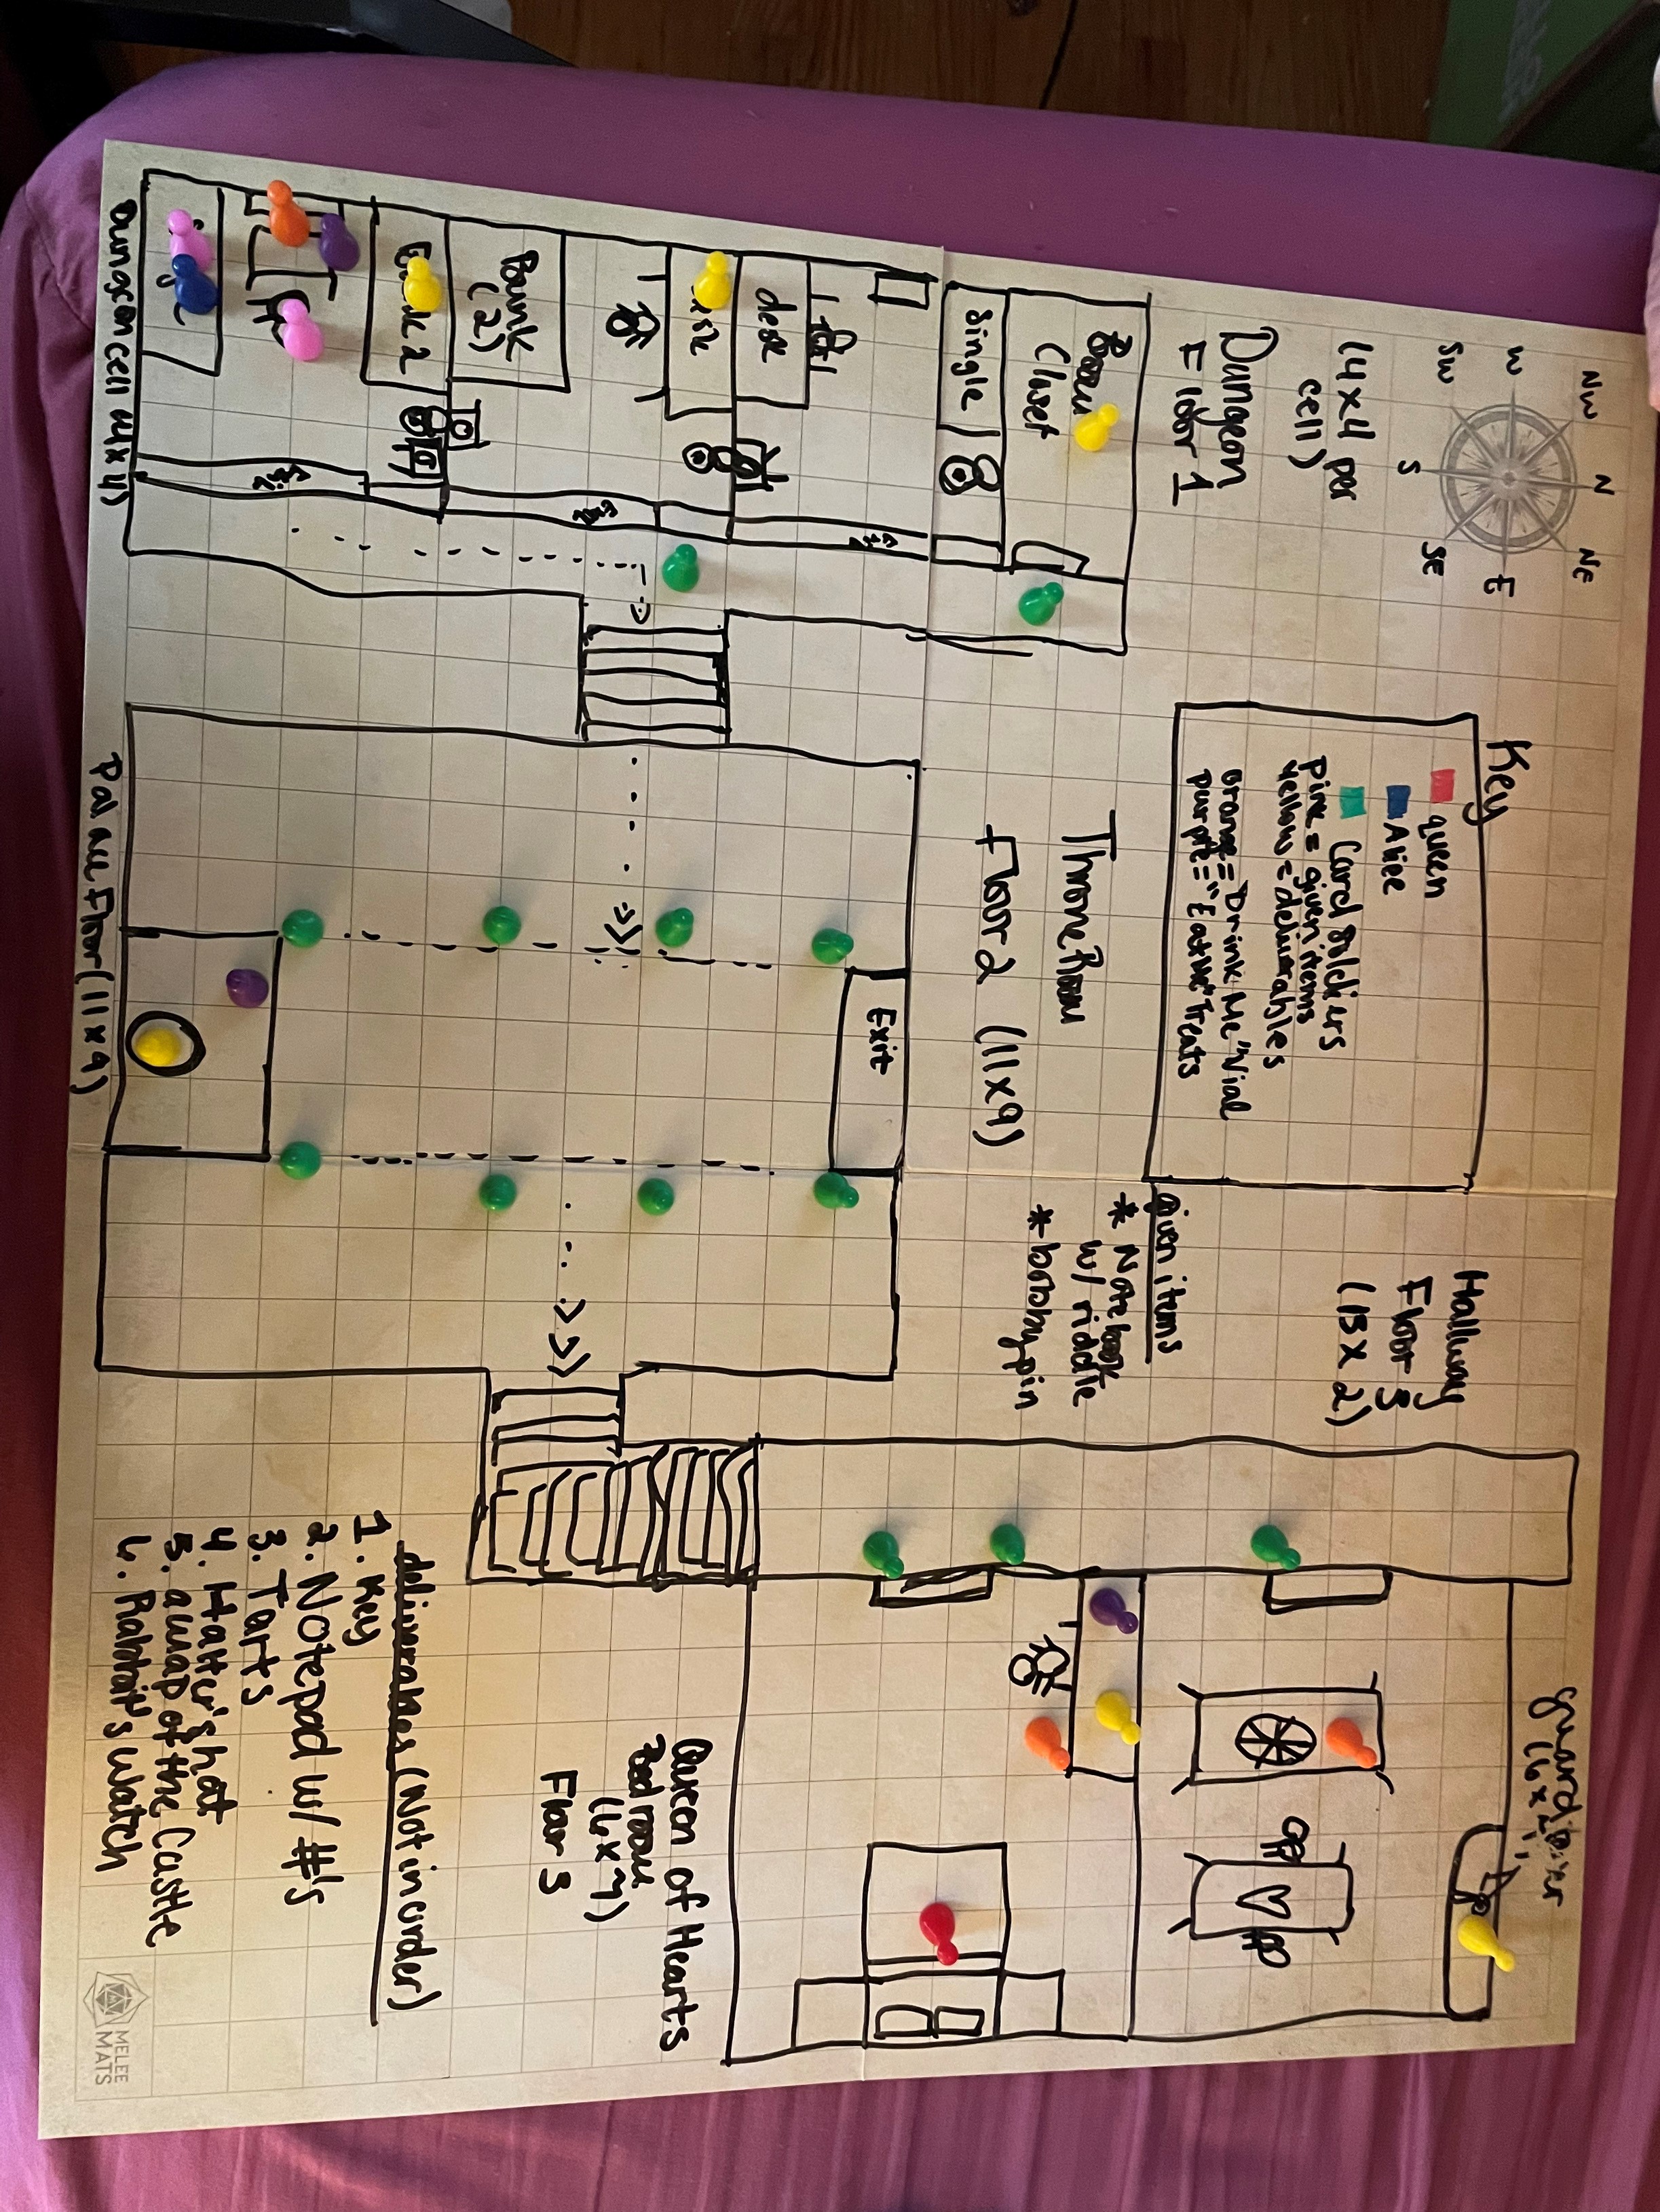 NW
N
NE
W
E
SW
S
SE
(4x4 per
cell)
Dungeon
Floor 1
Broom
Closet
Single
desk
Bunk
(2)
2
Dungeon cell (4x4)
Key
queen
Alice
Card Soldiers
Pink = given items
Yellow = deliverables
orange = "Drink Me" Vial
purple = "Eat Me" Treats
Throne Room
Floor 2 (11x9)
Exit
Palace Floor (11x9)
Given items
* Notebook
w/ riddle
* bobby pin
Hallway
Floor 3
(15x2)
guard
Queen of Hearts
Bed room
Floor 3
deliverables (Not in order)
1. Key
2. Notepad w/ #'s
3. Tarts
4. Hatter's hat
5. a map of the Castle
6. Rabbit's watch
MELEE
MATS